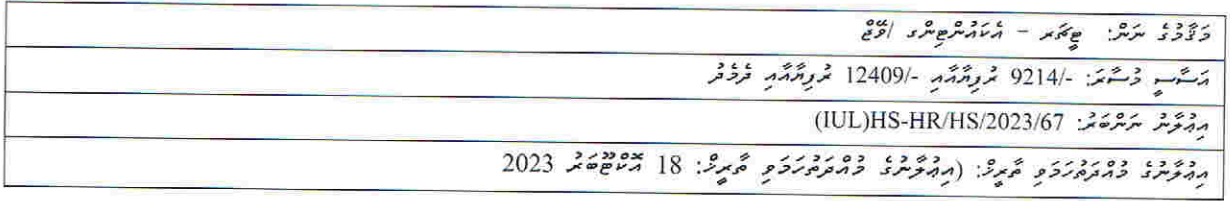 މަޤާމުގެ ނަން: ޓީޗަރ – އެކައުންޓިންގ /ވޭޖް
އަސާސީ މުސާރަ: -/9214 ރުފިޔާއާއި -/12409 ރުފިޔާއާއި ދެމެދު
އިޢުލާނު ނަންބަރު: (IUL)HS-HR/HS/2023/67
އިޢުލާނުގެ މުއްދަތުހަމަވި ތާރީޚް: (އިޢުލާނުގެ މުއްދަތުހަމަވި ތާރީޚް: 18 އޮކްޓޫބަރު 2023